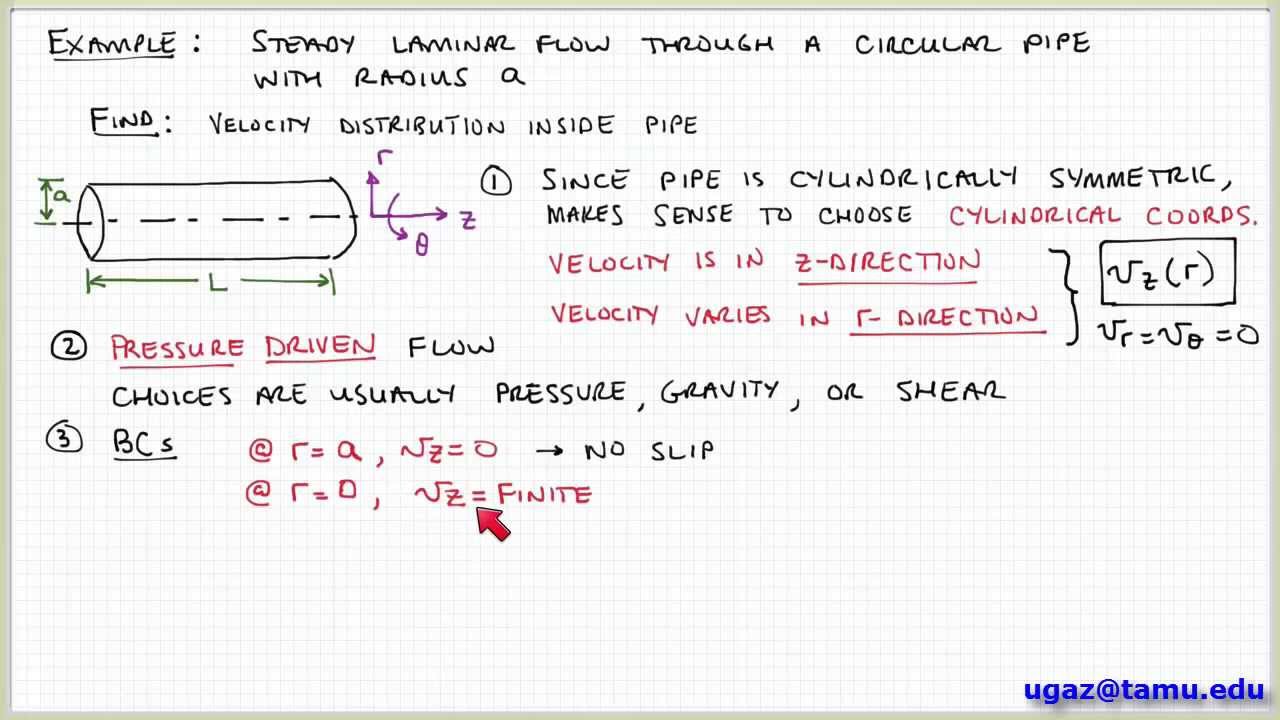 EXAMPLE: STEADY LAMINAR FLOW THROUGH A CIRCULAR PIPE
WITH RADIUS a
FIND: VELOCITY DISTRIBUTION INSIDE PIPE
a
L
r
z
θ
① SINCE PIPE IS CYLINDRICALLY SYMMETRIC,
MAKES SENSE TO CHOOSE CYLINDRICAL COORDS.
VELOCITY IS IN z-DIRECTION
VELOCITY VARIES IN r-DIRECTION
v_z(r)
v_r = v_θ = 0
② PRESSURE DRIVEN FLOW
CHOICES ARE USUALLY PRESSURE, GRAVITY, OR SHEAR
③ BCs @ r = a, v_z = 0 → NO SLIP
@ r = 0, v_z = FINITE
ugaz@tamu.edu